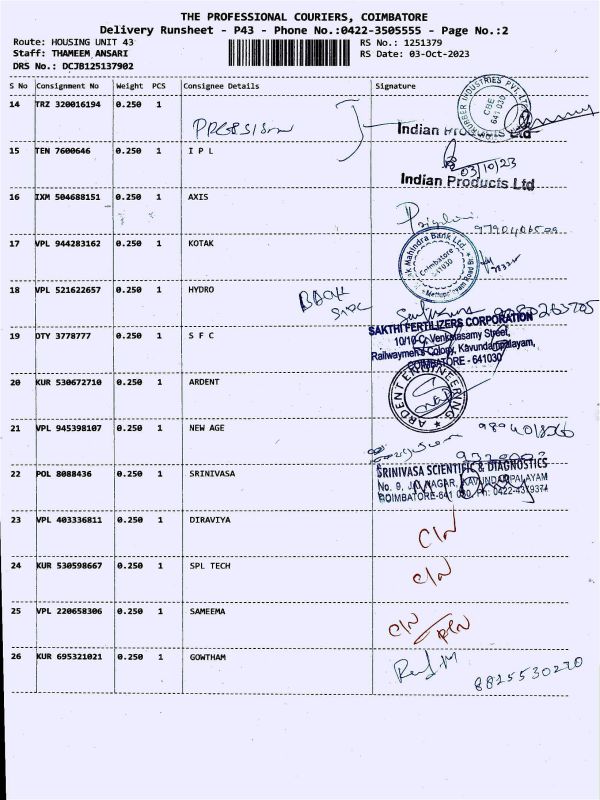 THE PROFESSIONAL COURIERS, COIMBATORE
Delivery Runsheet - P43 - Phone No.:0422-3505555 - Page No.:2
Route: HOUSING UNIT 43 RS No.: 1251379
Staff: THAMEEM ANSARI RS Date: 03-Oct-2023
DRS No.: DCJB125137902
S No Consignment No Weight PCS Consignee Details Signature
14 TRZ 320016194 0.250 1
Indian Products Ltd
15 TEN 7600646 0.250 1 I P L
03/10/23
Indian Products Ltd
16 IXM 504688151 0.250 1 AXIS
17 VPL 944283162 0.250 1 KOTAK
Mahindra Bank Ltd.
Coimbatore
18 VPL 521622657 0.250 1 HYDRO
BACK
SIDE
19 DTY 3778777 0.250 1 S F C
SAKTHI FERTILIZERS CORPORATION
10/10 C, Venkatasamy Street,
Railwaymen's Colony, Kavundampalayam,
COIMBATORE - 641030
20 KUR 530672710 0.250 1 ARDENT
ARDENT ENGINEERING
21 VPL 945398107 0.250 1 NEW AGE
22 POL 8088436 0.250 1 SRINIVASA
SRINIVASA SCIENTIFIC & DIAGNOSTICS
No. 9, NAGAR, KAVUNDAMPALAYAM
COIMBATORE-641 030, Ph: 0422-
23 VPL 403336811 0.250 1 DIRAVIYA
C/N
24 KUR 530598667 0.250 1 SPL TECH
C/N
25 VPL 220658306 0.250 1 SAMEEMA
C/N
26 KUR 695321021 0.250 1 GOWTHAM
8825530270